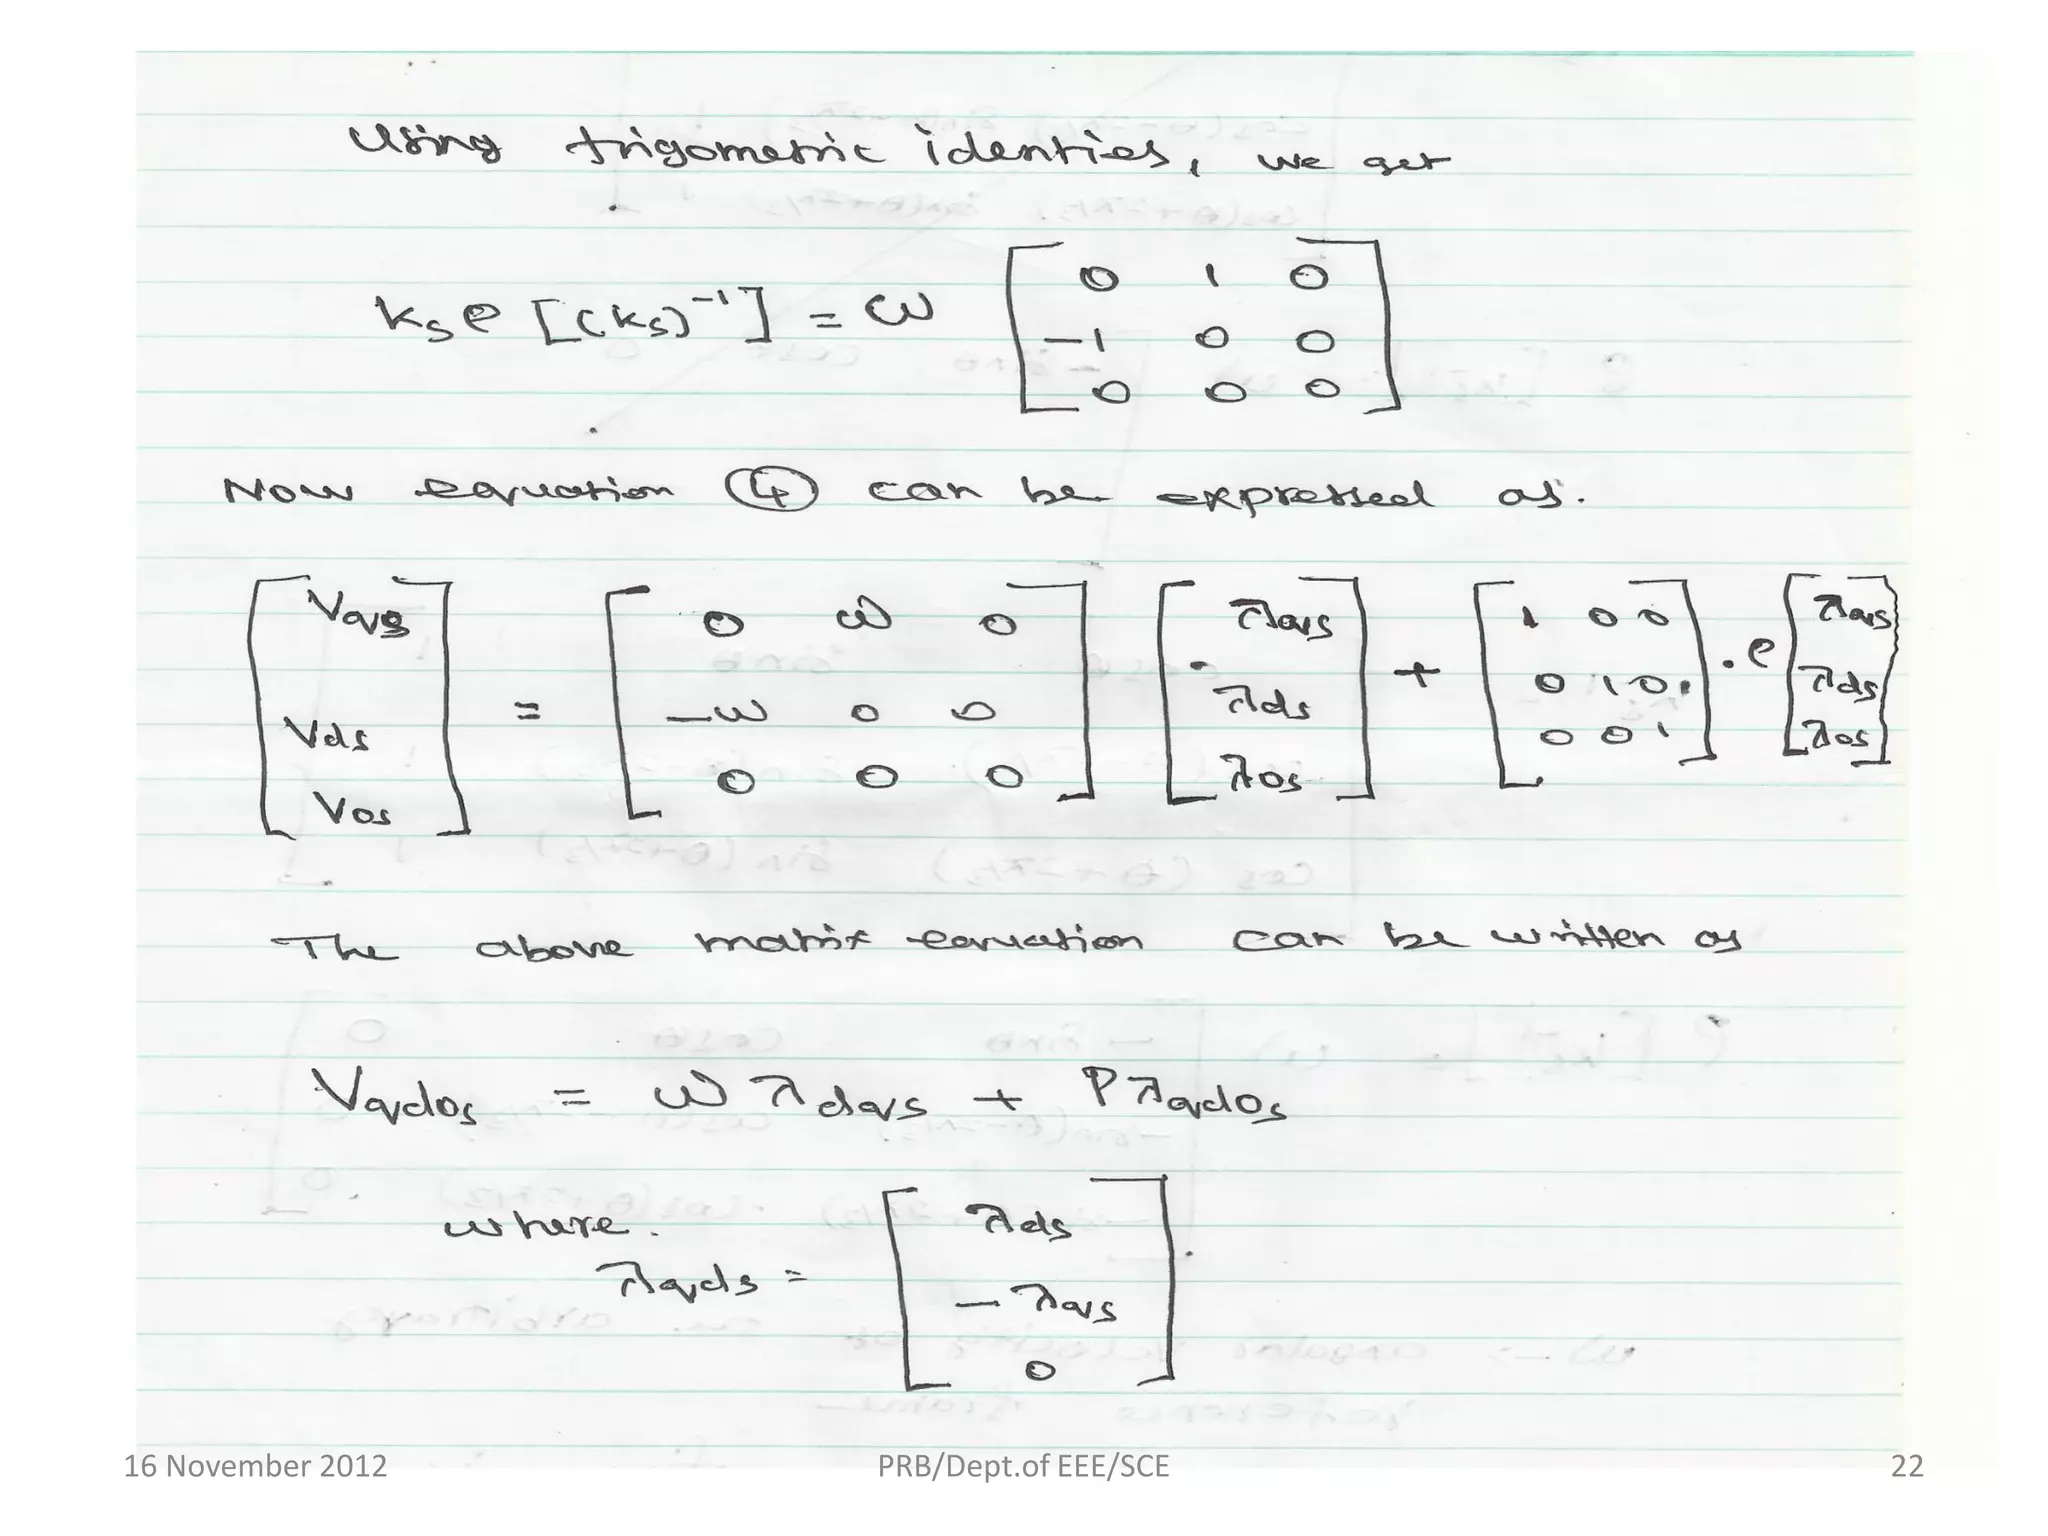 Using trigometric identies, we get
Ks P [(Ks)⁻¹] = ω [ 0 1 0
-1 0 0
0 0 0 ]
Now equation ④ can be expressed as.
[ Vqs
Vds
Vos ] = [ 0 ω 0
-ω 0 0
0 0 0 ] [ λqs
λds
λos ] + [ 1 0 0
0 1 0
0 0 1 ] . P [ λqs
λds
λos ]
The above matrix equation can be written as
Vqdos = ω λdqs + P λqdos
where.
λqds = [ λds
- λqs
0 ]
16 November 2012
PRB/Dept.of EEE/SCE
22